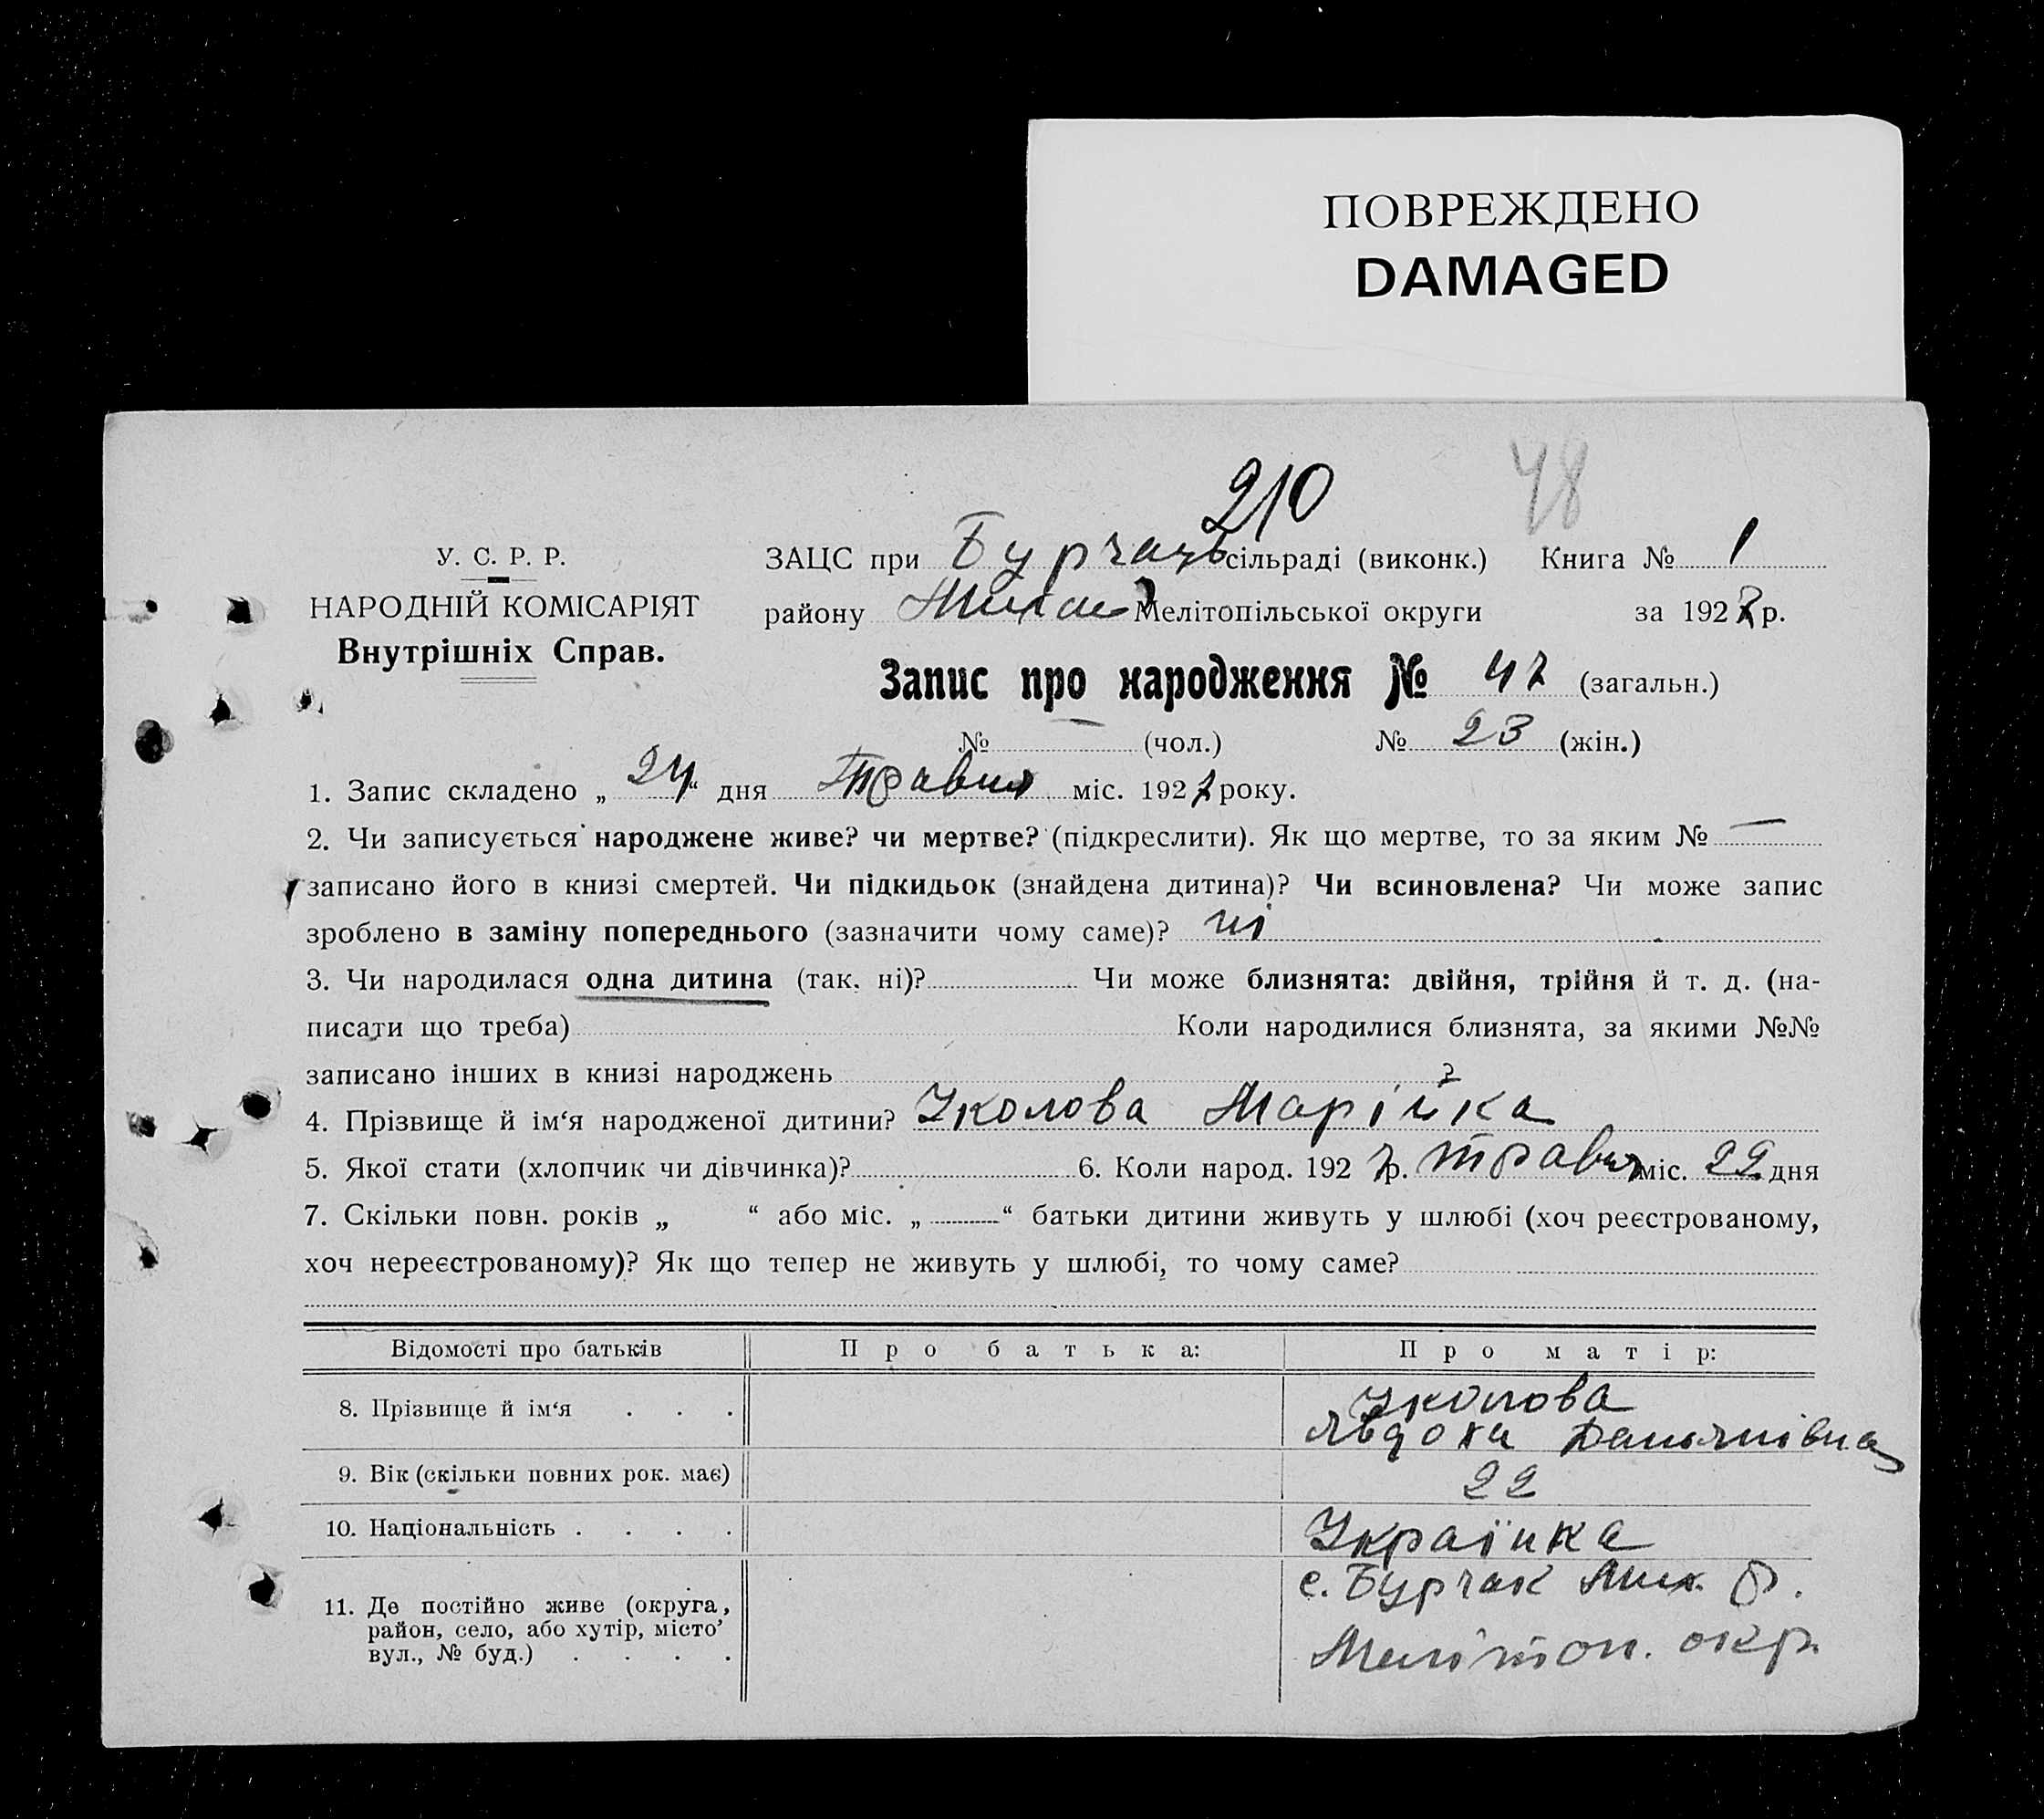 ПОВРЕЖДЕНО
DAMAGED
210 48
У. С. Р. Р.
НАРОДНІЙ КОМІСАРІЯТ
Внутрішніх Справ.
ЗАЦС при Бурчаць сільраді (виконк.) Книга № 1
району Михай Мелітопільської округи за 1927 р.
Запис про народження № 47 (загальн.)
№ — (чол.) № 23 (жін.)
1. Запис складено „ 24 “ дня Травня міс. 1927 року.
2. Чи записується народжене живе? чи мертве? (підкреслити). Як що мертве, то за яким № —
записано його в книзі смертей. Чи підкидьок (знайдена дитина)? Чи всиновлена? Чи може запис
зроблено в заміну попереднього (зазначити чому саме)? ні
3. Чи народилася одна дитина (так, ні)? Чи може близнята: двійня, трійня й т. д. (на-
писати що треба) Коли народилися близнята, за якими №№
записано інших в книзі народжень
4. Прізвище й ім‘я народженої дитини? Уколова Марійка
5. Якої стати (хлопчик чи дівчинка)? 6. Коли народ. 1927 р. травня міс. 22 дня
7. Скільки повн. років „ “ або міс. „ “ батьки дитини живуть у шлюбі (хоч реєстрованому,
хоч нереєстрованому)? Як що тепер не живуть у шлюбі, то чому саме?
Відомості про батьків Про батька: Про матір:
8. Прізвище й ім‘я . . . Уколова
Явдоха Данилівна
9. Вік (скільки повних рок. має) 22
10. Національність . . . . Українка
11. Де постійно живе (округа,
район, село, або хутір, місто’
вул., № буд.) . . . .
с. Бурчак Мих. р.
Мелітоп. окр.